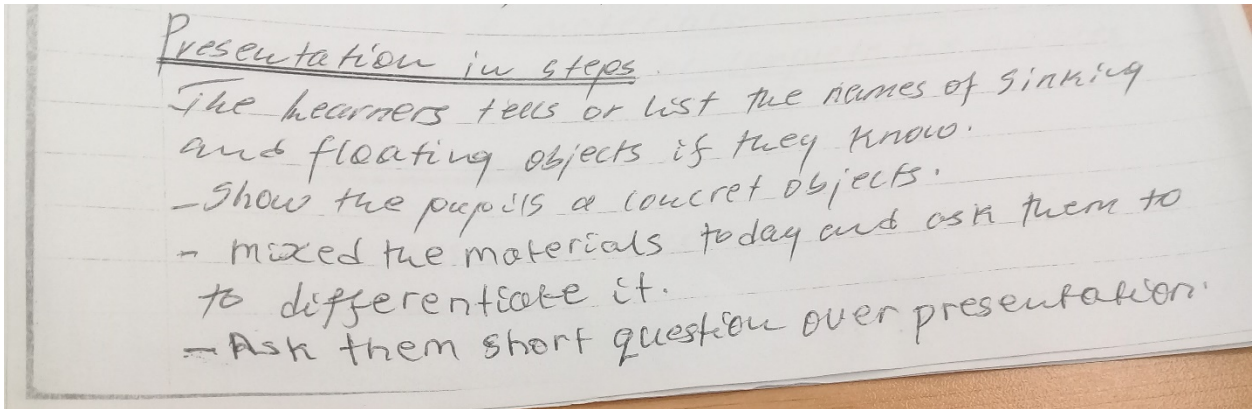 Presentation in steps.
The hearners tells or list the names of Sinking
and floating objects if they know.
- Show the pupils a concret objects.
- mixed the materials today and ask them to
to differentiate it.
- Ask them short question over presentation.